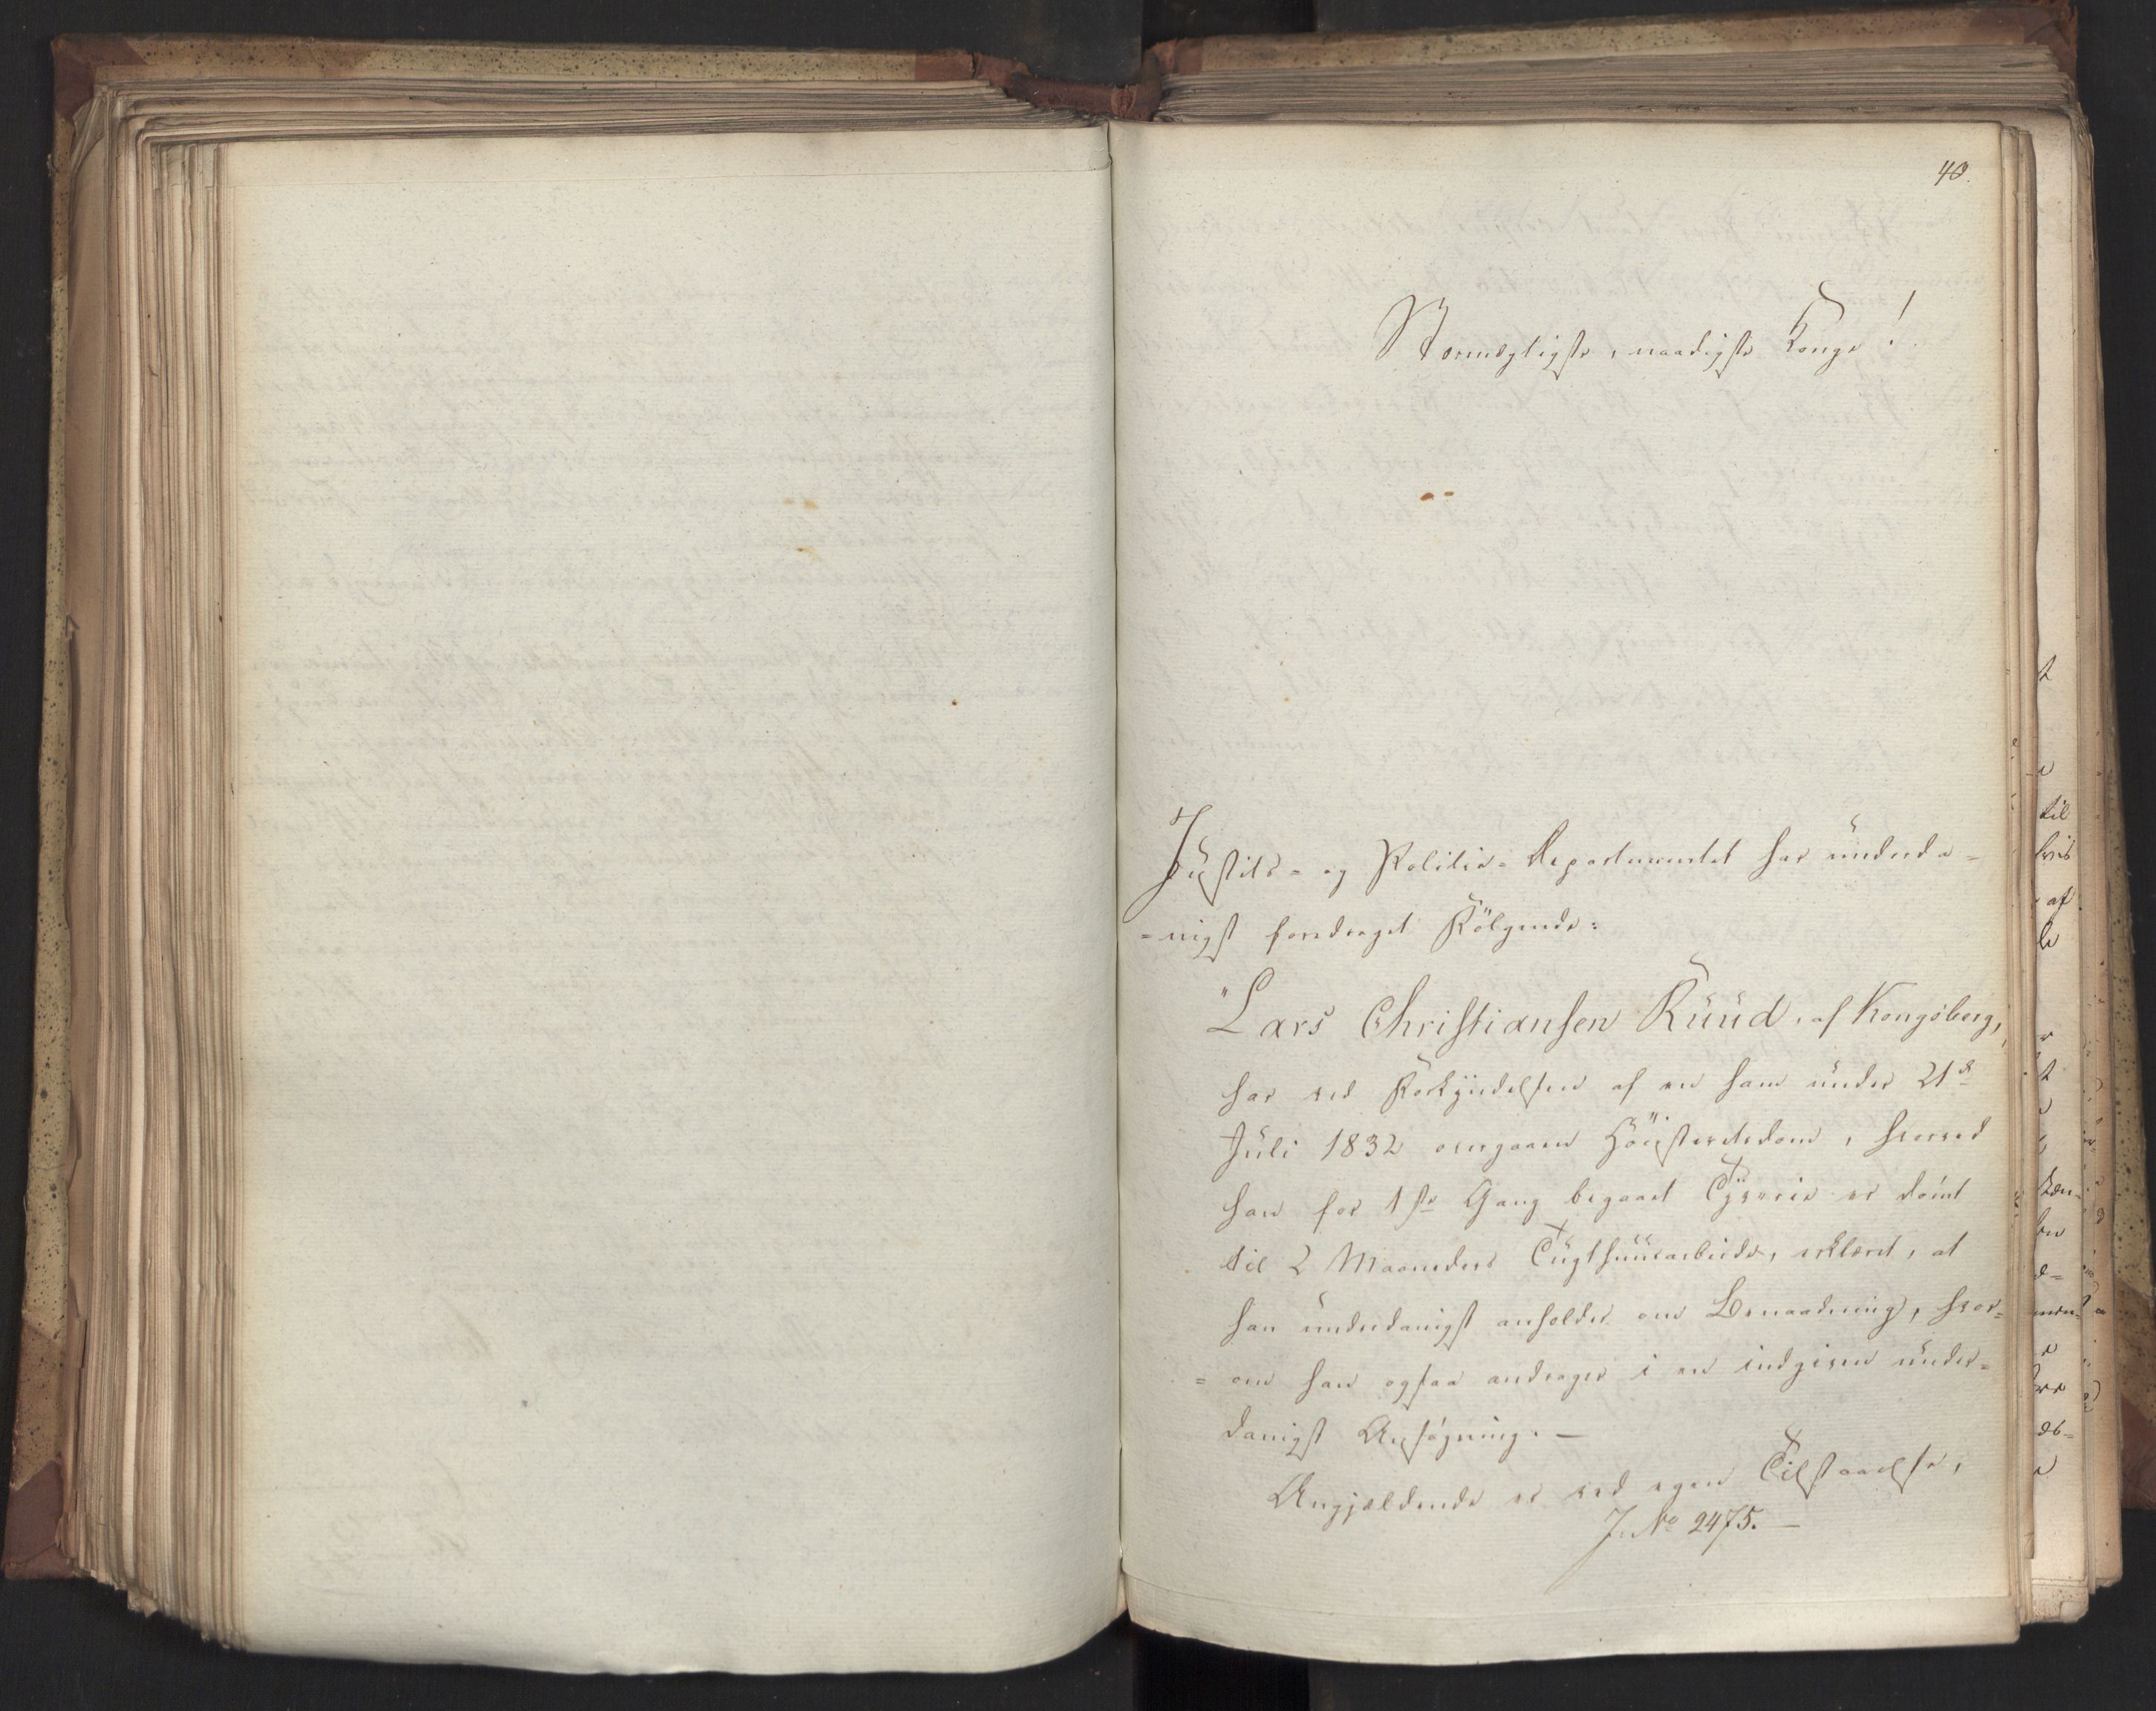 40.
Stormægtigste, naadigste Konge!
Justits- og Politie-Departementet har underda-
-nigst foredraget Følgende:
"Lars Christiansen Ruud, af Kongsberg,
har ved Forkyndelsen af en ham under 21de
Juli 1832 overgaaen Høiesteretsdom, hvorved
han for 1ste Gang begaaet Tyverie er dømt
til 2 Maaneders Tugthuusarbeide, erklæret, at
han underdanigst anholder om Benaadning, hvor-
-om han ogsaa andrager i en indgiven under-
danigst Ansøgning. —
Angjældende er ved egen Tilstaaelse,
J. No 2475. —